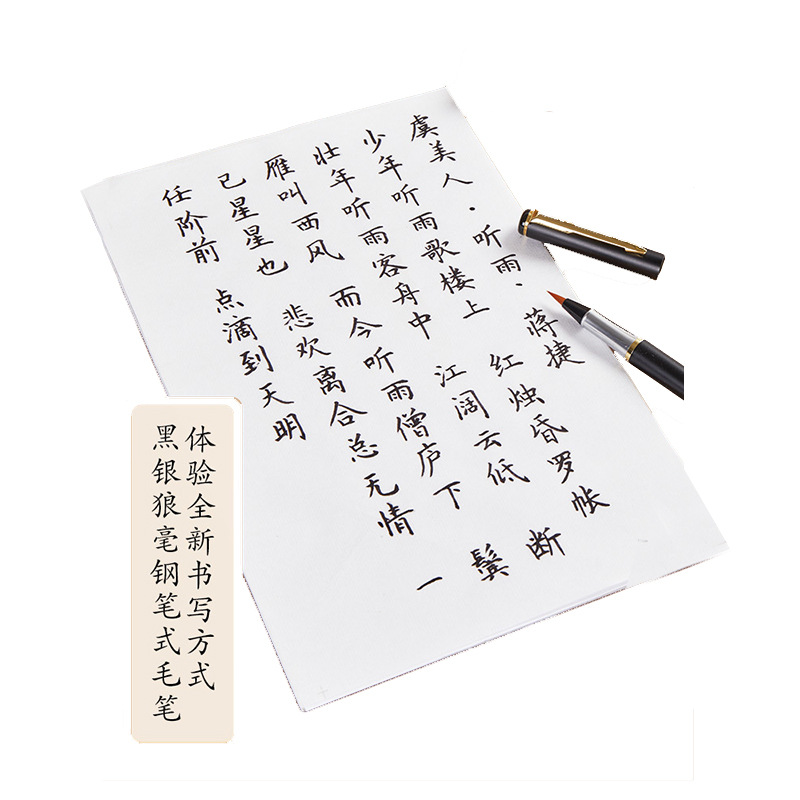 虞美人·听雨·蒋捷
少年听雨歌楼上 红烛昏罗帐
壮年听雨客舟中 江阔云低 断
雁叫西风 而今听雨僧庐下 鬓
已星星也 悲欢离合总无情 一
任阶前 点滴到天明
体验全新书写方式
黑银狼毫钢笔式毛笔